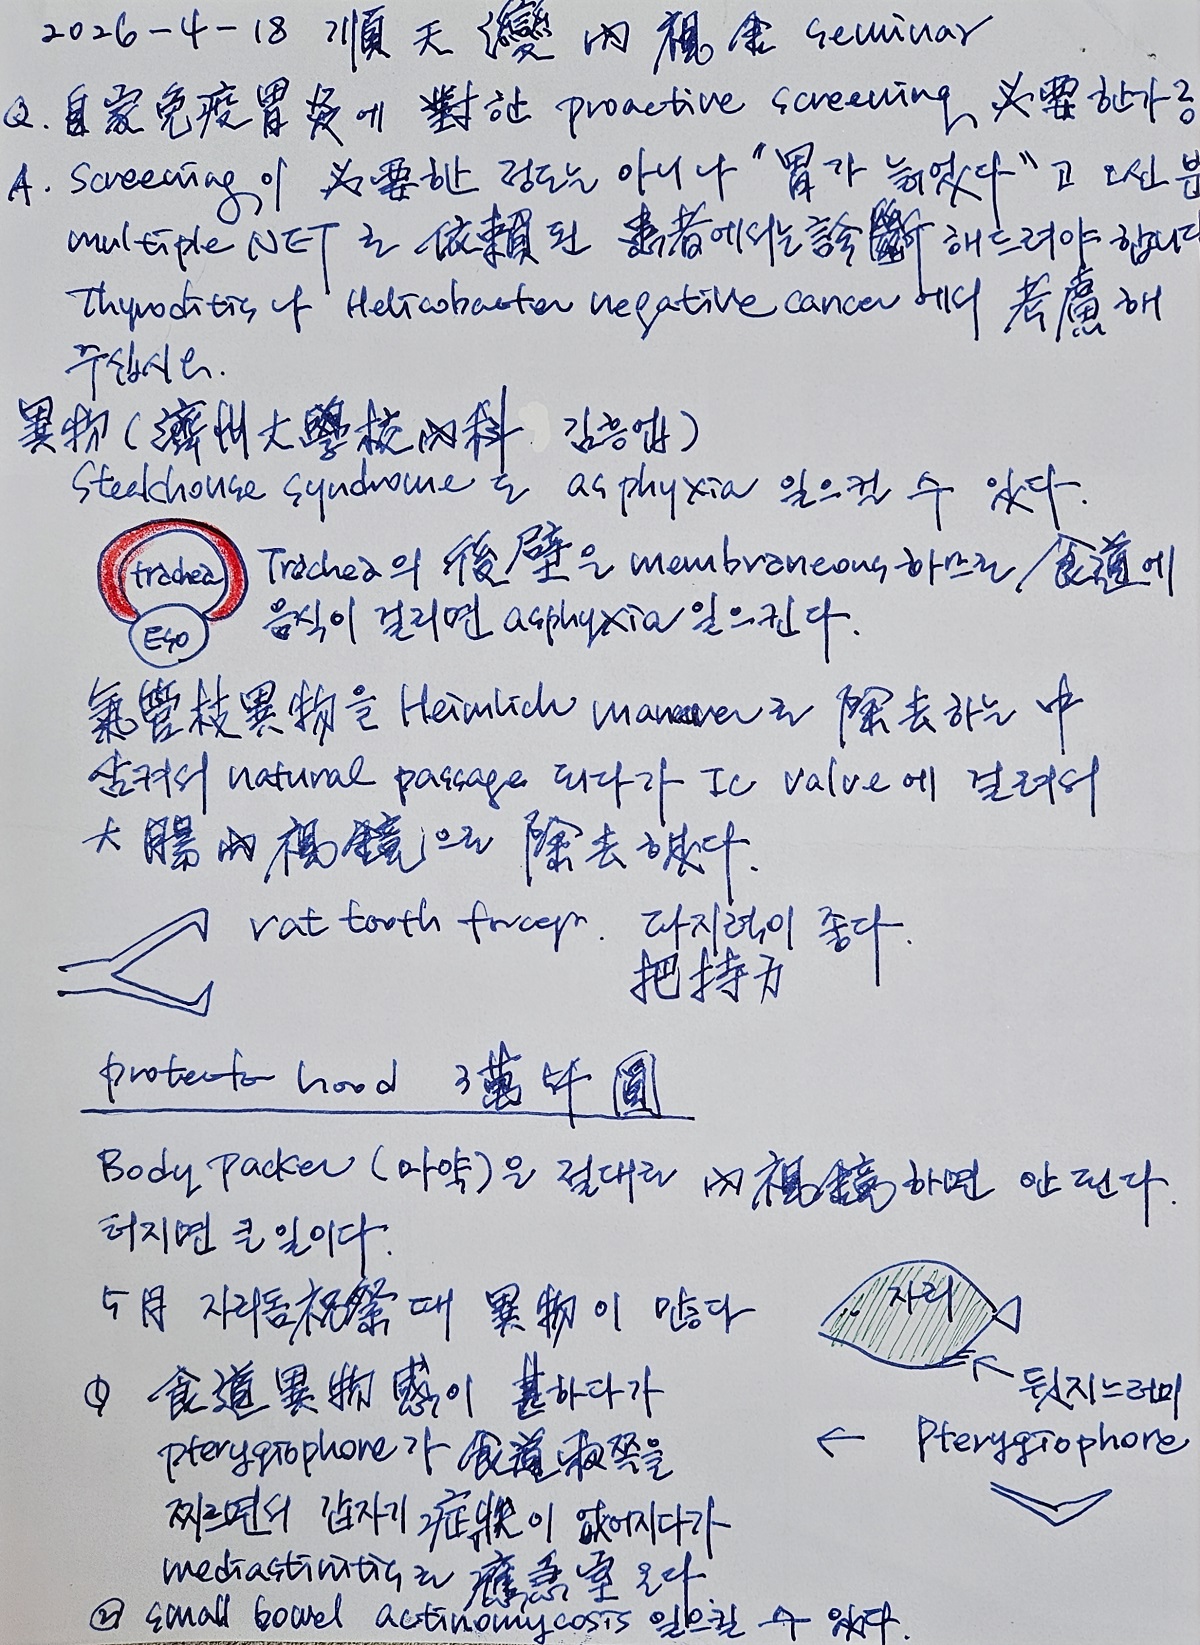 2026-4-18 順天灣內視鏡 seminar
Q. 自家免疫胃炎에 對한 proactive screening 必要한가요
A. Screening이 必要한 정도는 아니나 "胃가 늙었다"고 오신 분
multiple NET로 依賴된 患者에서는 診斷해드려야 합니다
Thyroditis나 Helicobacter negative cancer에서 考慮해
주십시오.
異物 (濟州大學校 內科 김흥업)
Steakhouse syndrome도 asphyxia 일으킬 수 있다.
trachea
Eso
Trachea의 後壁은 membraneous하므로 食道에
음식이 걸리면 asphyxia 일으킨다.
氣管枝異物을 Heimlich maneuver로 除去하는 中
삼켜서 natural passage 되다가 IC valve에 걸려서
大腸內視鏡으로 除去했다.
rat tooth forcep. 파지력이 좋다.
把持力
protector hood 3萬5千圓
Body packer (마약)은 절대로 內視鏡하면 안 된다.
터지면 큰일이다.
5月 자리돔祝祭 때 異物이 많다
자리
뒷지느러미
← Pterygiophore
① 食道異物感이 甚하다가
pterygiophore가 食道 쪽을
찌르면서 갑자기 症狀이 없어지다가
mediastinitis로 應急室 온다.
② small bowel actinomycosis 일으킬 수 있다.